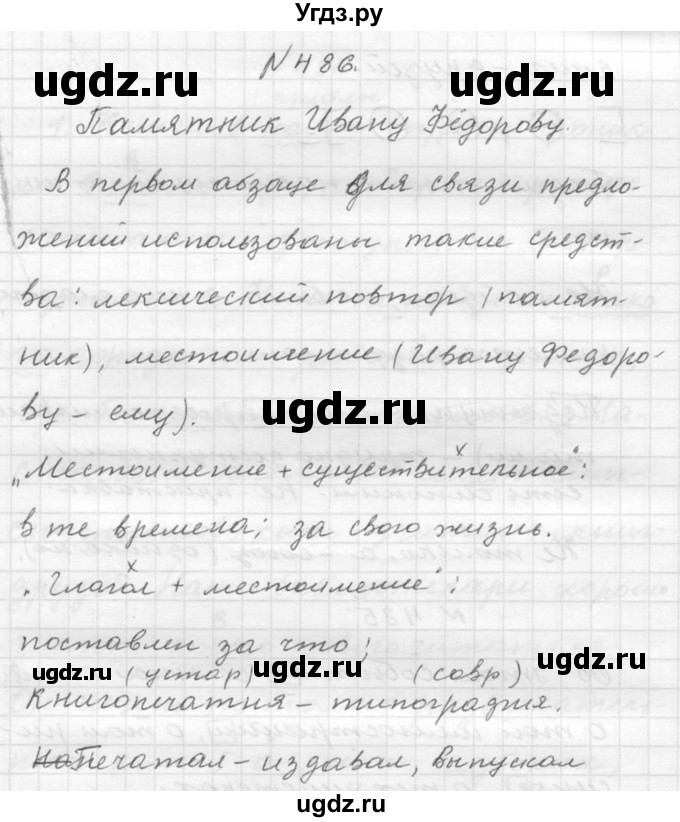 Угдз.ру
N 486.
ugdz.ru ugdz.ru
Памятник Ивану Фёдорову.
В первом абзаце для связи предло-
жений использованы такие средст-
ва: лексический повтор (памят-
ник), местоимение (Ивану Федоро-
ву - ему).
ugdz.ru
"Местоимение + существительное":
в те времена; за свою жизнь.
"Глагол + местоимение":
поставлен за что;
ugdz.ru (устар) ugdz.ru (совр) ugdz.ru
Книгопечатня - типография.
Печатал - издавал, выпускал
ugdz.ru